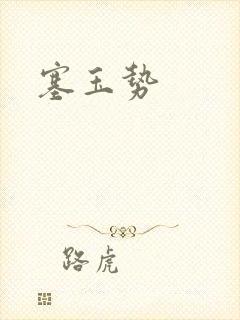 塞玉勢
路虎